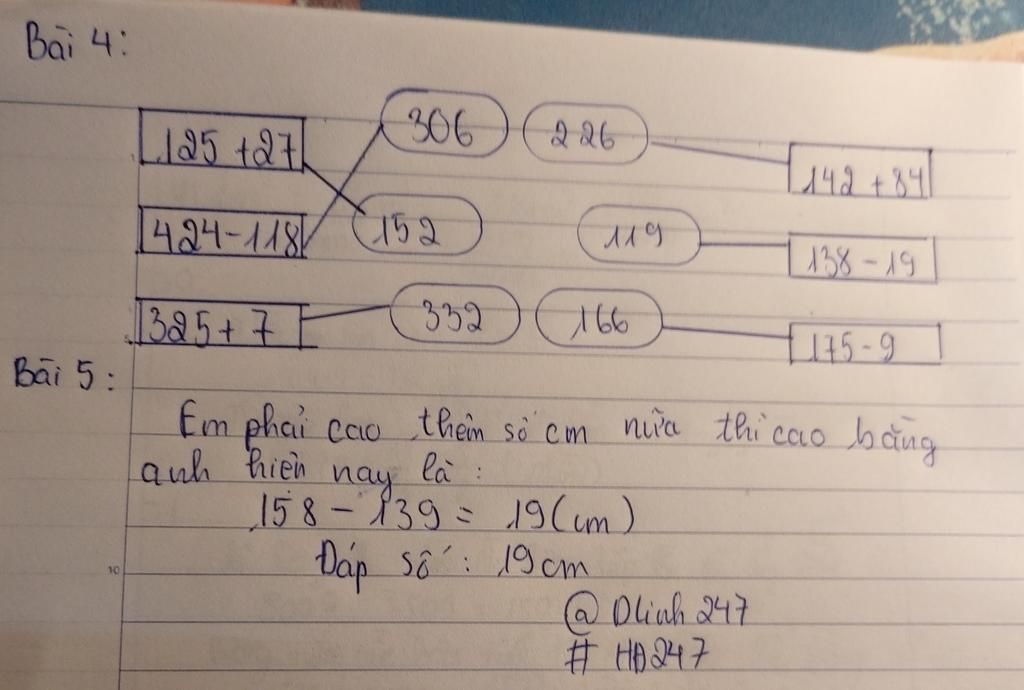 Bài 4:
125 + 27 306 226 142 + 84
424 - 118 152 119 138 - 19
325 + 7 332 166 175 - 9
Bài 5:
Em phải cao thêm số cm nữa thì cao bằng
anh hiện nay là:
158 - 139 = 19 (cm)
Đáp số: 19 cm
10
@ DLinh 247
# HĐ247